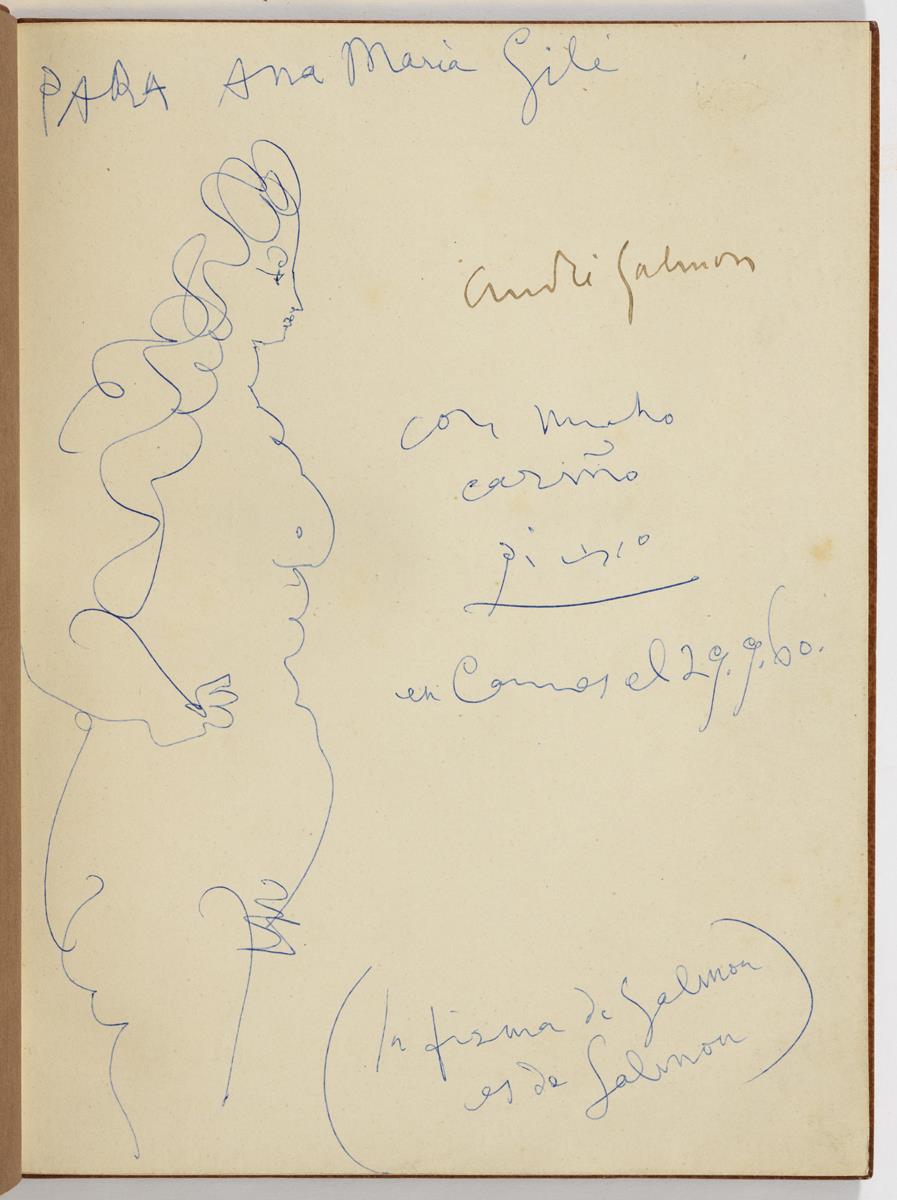 PARA Ana Maria Gili
André Salmon
con mucho
cariño
Picasso
en Cannes el 29.9.60.
(la firma de Salmon
es de Salmon)